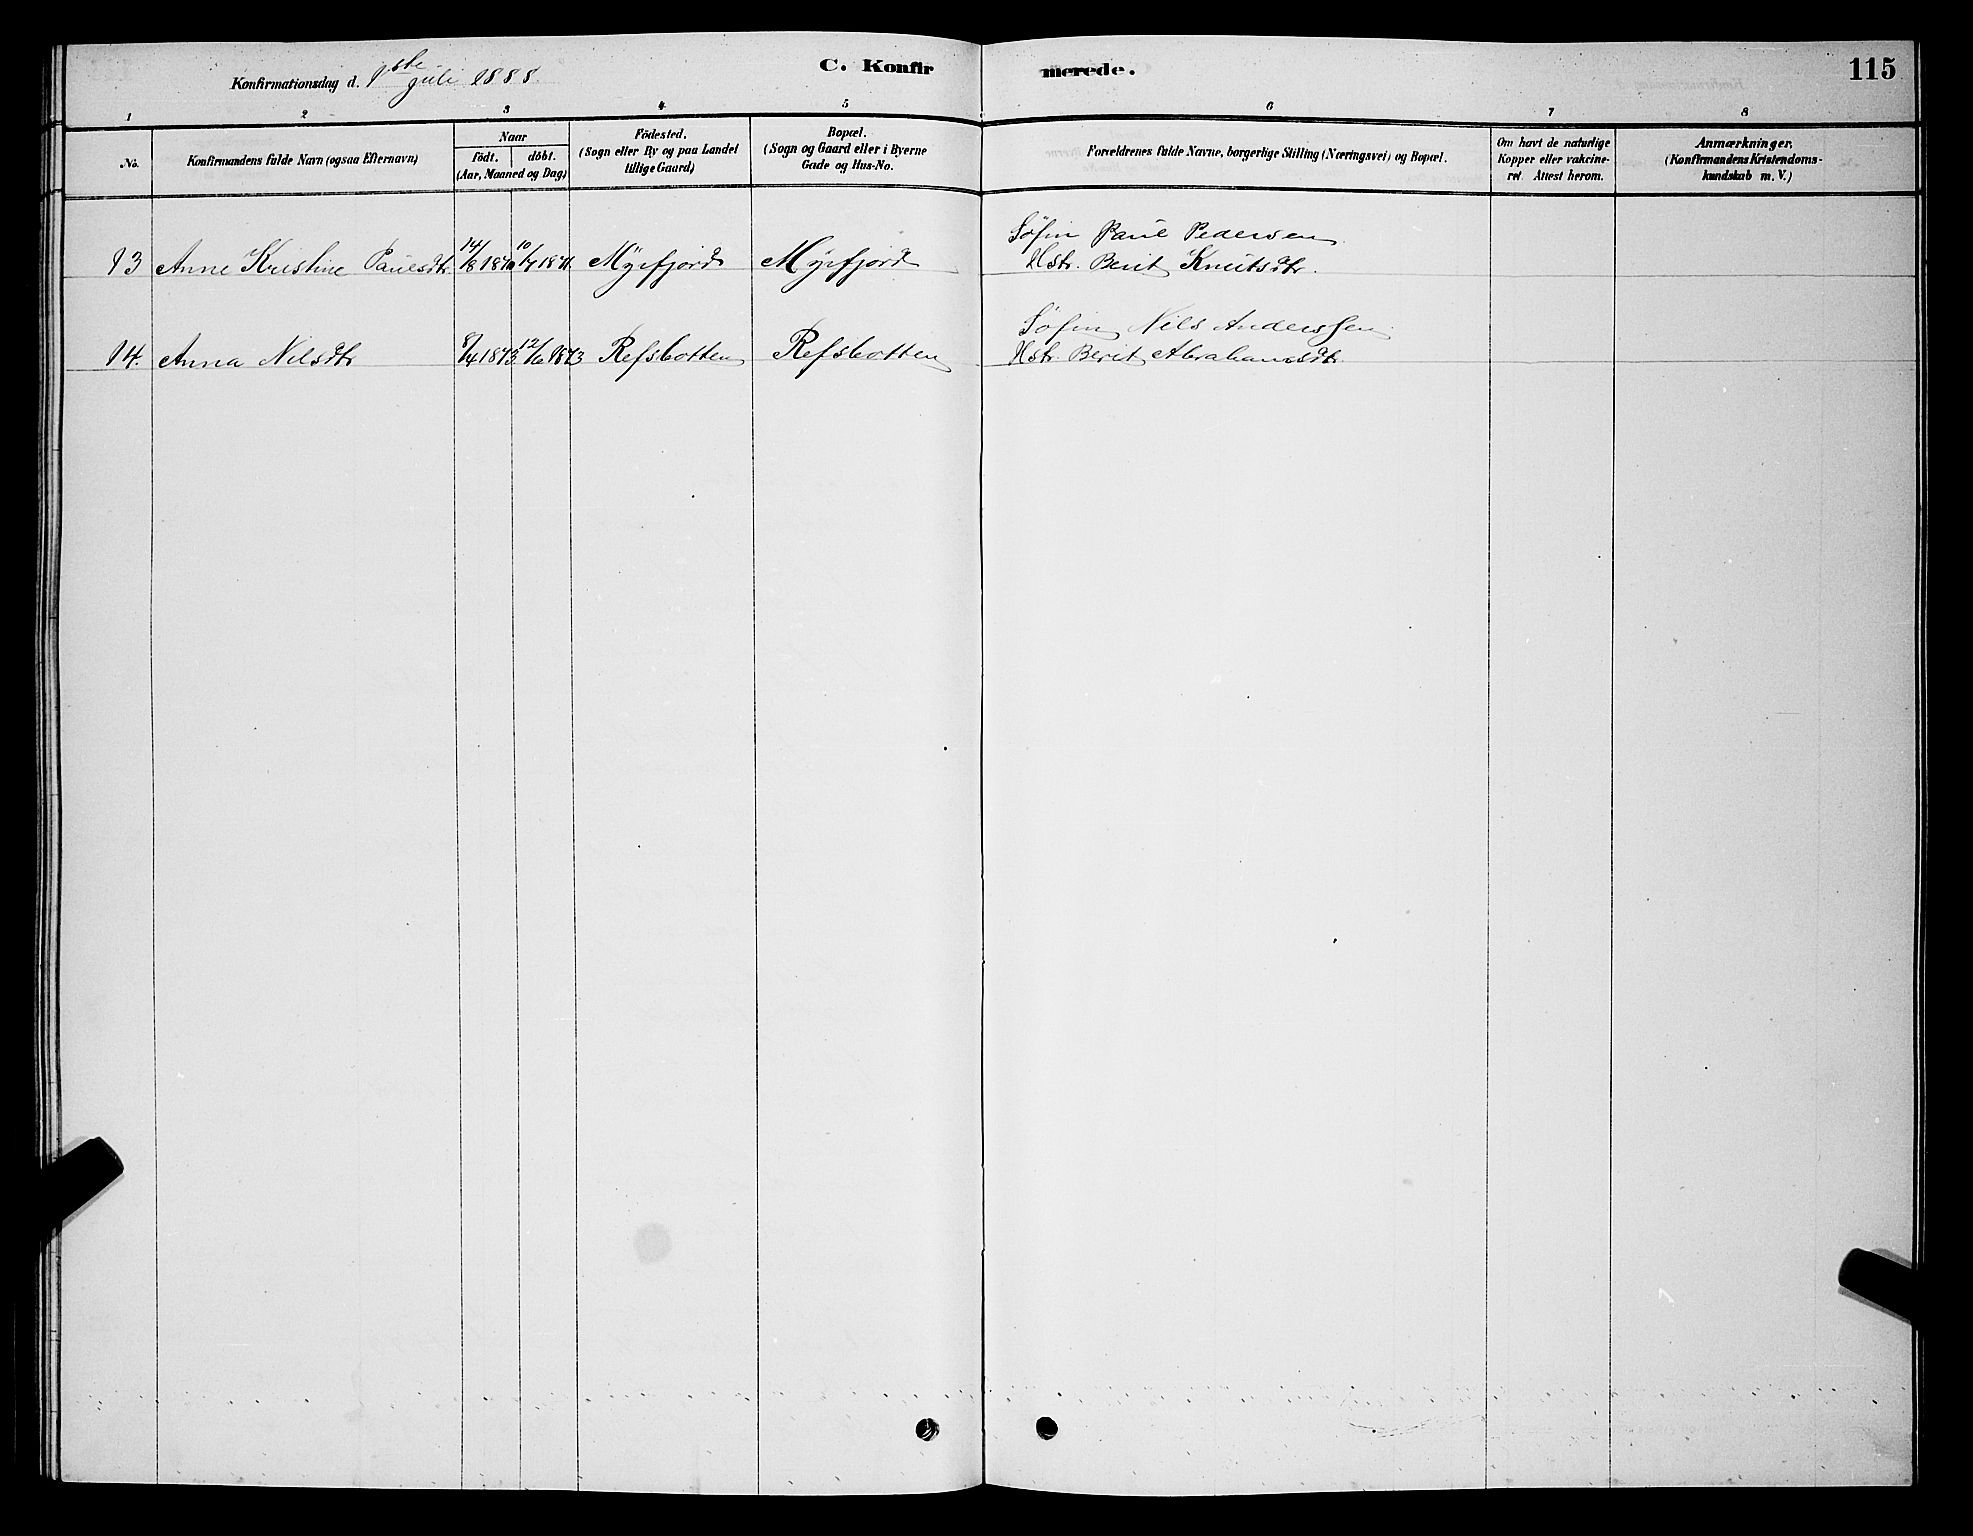 Konfirmationsdag d. 1ste Juli 1888.
C. Konfirmerede.
115
1 2 3 4 5 6 7 8
No.
Konfirmandens fulde Navn (ogsaa Efternavn)
Naar
født. døbt.
(Aar, Maaned og Dag)
Födested.
(Sogn eller By og paa Landet
tillige Gaard)
Bopæl.
(Sogn og Gaard eller i Byerne
Gade og Hus-No.
Forældrenes fulde Navne, borgerlige Stilling (Næringsvei) og Bopæl.
Om havt de naturlige
Kopper eller vakcine-
ret. Attest herom.
Anmærkninger.
(Konfirmandens Kristendoms-
kundskab m. V.)
Söfin Paul Pedersen
13 Anne Kristine Paulsdtr. 14/8 1870 10/7 1871 Myrfjord Myrfjord Hstr. Berit Knutsdtr.
Söfin Nils Anderssen
14. Anna Nilsdtr 8/4 1873 12/6 1873 Refsbotten Refsbotten Hstr. Berit Abrahamsdtr.